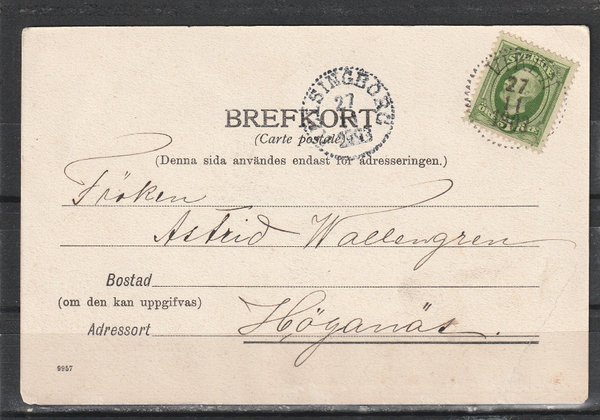 HELSINGBORG
27
11
BREFKORT
(Carte postale)
(Denna sida användes endast för adresseringen.)
SVERIGE
27
11
Fröken
Astrid Wallengren
Bostad
(om den kan uppgifvas)
Adressort
Höganäs.
9957